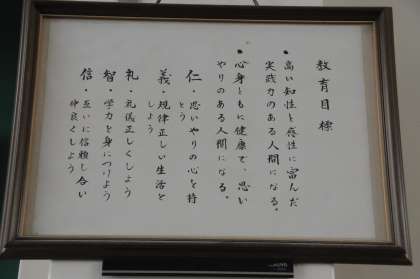 教育目標
●高い知性と感性に富んだ
実践力のある人間になる。
●心身ともに健康で、思い
やりのある人間になる。
仁・思いやりの心を持
とう
義・規律正しい生活を
しよう
礼・礼儀正しくしよう
智・学力を身につけよう
信・互いに信頼し合い
仲良くしよう